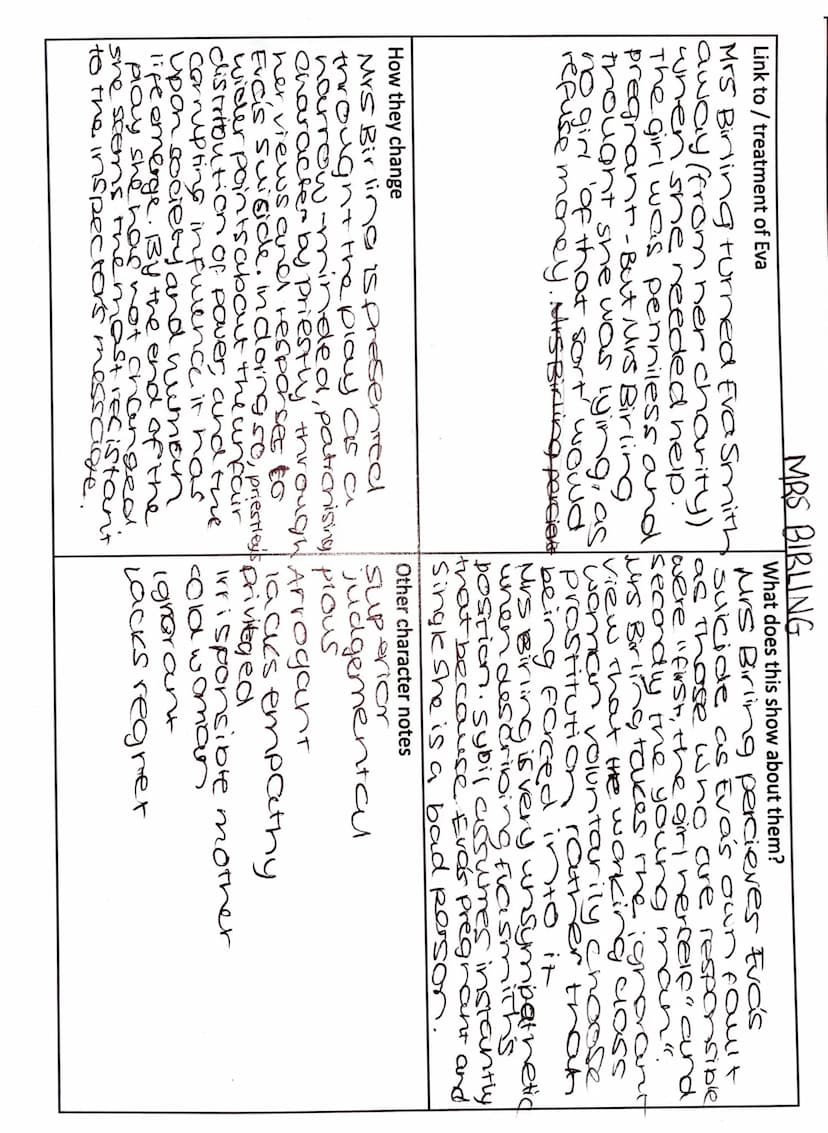 MRS BIRLING
Link to / treatment of Eva
Mrs Birling turned Eva Smith
away (from her charity)
when she needed help.
The girl was penniless and
pregnant - But Mrs Birling
thought she was lying, as
no girl 'of that sort' would
refuse money. Mrs Birling percieves
What does this show about them?
Mrs Birling percieves Eva's
suicide as Eva's own fault
as those who are responsible
were "first, the girl herself" and
secondly the young man".
Mrs Birling takes the ignorant
view that the working class
woman voluntarily choose
prostitution rather than
being forced into it
Mrs Birling is very unsympathetic
when describing Eva Smiths
position. Sybil assumes instantly
that because Eva's pregnant and
single she is a bad person.
How they change
Mrs Birling is presented
throught the play as a
narrow-minded, patronising
character by Priestly through
her views and response to
Eva's suicide. In doing so, priestley's
wider points about the unfair
distribution of power and the
corrupting influence it has
upon society and human
life emerge. By the end of the
play she has not changed
she seems the most resistant
to the inspectors message.
Other character notes
Superior
judgemental
pious
Arrogant
lacks empathy
privileged
irrisponsible mother
cold woman
ignorant
Lacks regret